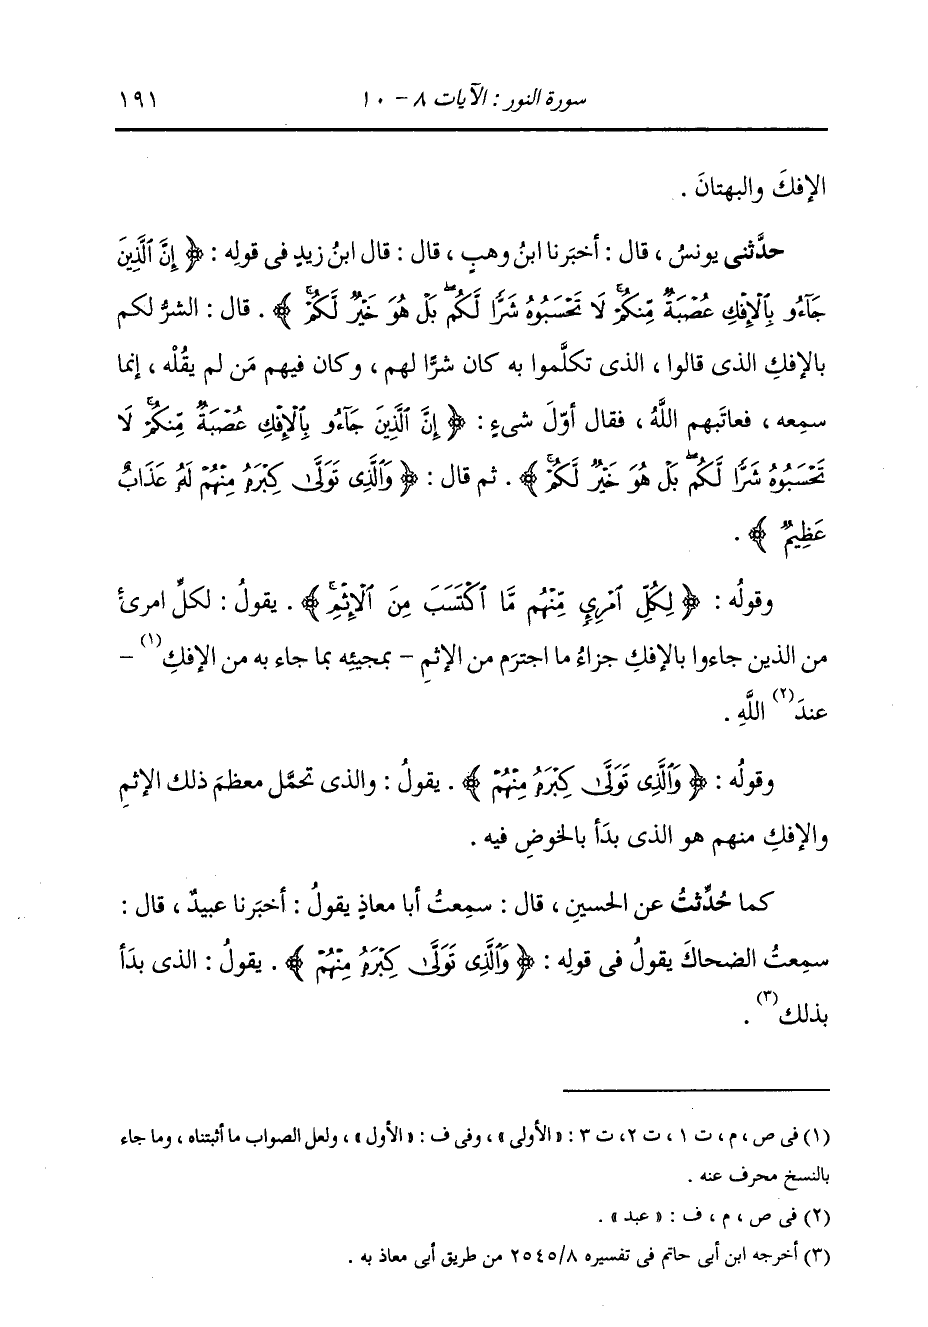 سورة النور : الآيات ٨ - ١٠
١٩١
الإفكَ والبهتانَ .
حدَّثنى يونسُ ، قال : أخبَرنا ابنُ وهبٍ ، قال : قال ابنُ زيدٍ فى قولِه : ﴿ إِنَّ ٱلَّذِينَ
جَآءُو بِٱلْإِفْكِ عُصْبَةٌ مِّنكُمْ ۚ لَا تَحْسَبُوهُ شَرًّا لَّكُم ۖ بَلْ هُوَ خَيْرٌ لَّكُمْ ۚ ﴾ . قال : الشرُّ لكم
بالإفكِ الذى قالوا ، الذى تكلَّموا به كان شرًّا لهم ، وكان فيهم مَن لم يقُلْه ، إنما
سمِعه ، فعاتَبهم اللَّهُ ، فقال أوّلَ شىءٍ : ﴿ إِنَّ ٱلَّذِينَ جَآءُو بِٱلْإِفْكِ عُصْبَةٌ مِّنكُمْ ۚ لَا
تَحْسَبُوهُ شَرًّا لَّكُم ۖ بَلْ هُوَ خَيْرٌ لَّكُمْ ۚ ﴾ . ثم قال : ﴿ وَٱلَّذِى تَوَلَّىٰ كِبْرَهُ مِنْهُمْ لَهُ عَذَابٌ
عَظِيمٌ ﴾ .
وقولُه : ﴿ لِكُلِّ ٱمْرِىٍٕ مِّنْهُم مَّا ٱكْتَسَبَ مِنَ ٱلْإِثْمِ ۚ ﴾ . يقولُ : لكلِّ امرئٍ
من الذين جاءوا بالإفكِ جزاءُ ما اجترَم من الإثمِ - بمجيئِه بما جاء به من الإفكِ(١) -
عندَ(٢) اللَّهِ .
وقولُه : ﴿ وَٱلَّذِى تَوَلَّىٰ كِبْرَهُ مِنْهُمْ ﴾ . يقولُ : والذى تحمَّل معظمَ ذلك الإثمِ
والإفكِ منهم هو الذى بدَأ بالخوضِ فيه .
كما حُدِّثتُ عن الحسينِ ، قال : سمِعتُ أبا معاذٍ يقولُ : أخبَرنا عبيدٌ ، قال :
سمِعتُ الضحاكَ يقولُ فى قولِه : ﴿ وَٱلَّذِى تَوَلَّىٰ كِبْرَهُ مِنْهُمْ ﴾ . يقولُ : الذى بدَأ
بذلك(٣) .
(١) فى ص ، م ، ت ١ ، ت ٢ ، ت ٣ : « الأولى » ، وفى ف : « الأول » ، ولعل الصواب ما أثبتناه ، وما جاء
بالنسخ محرف عنه .
(٢) فى ص ، م ، ف : « عبد » .
(٣) أخرجه ابن أبى حاتم فى تفسيره ٢٥٤٥/٨ من طريق أبى معاذ به .